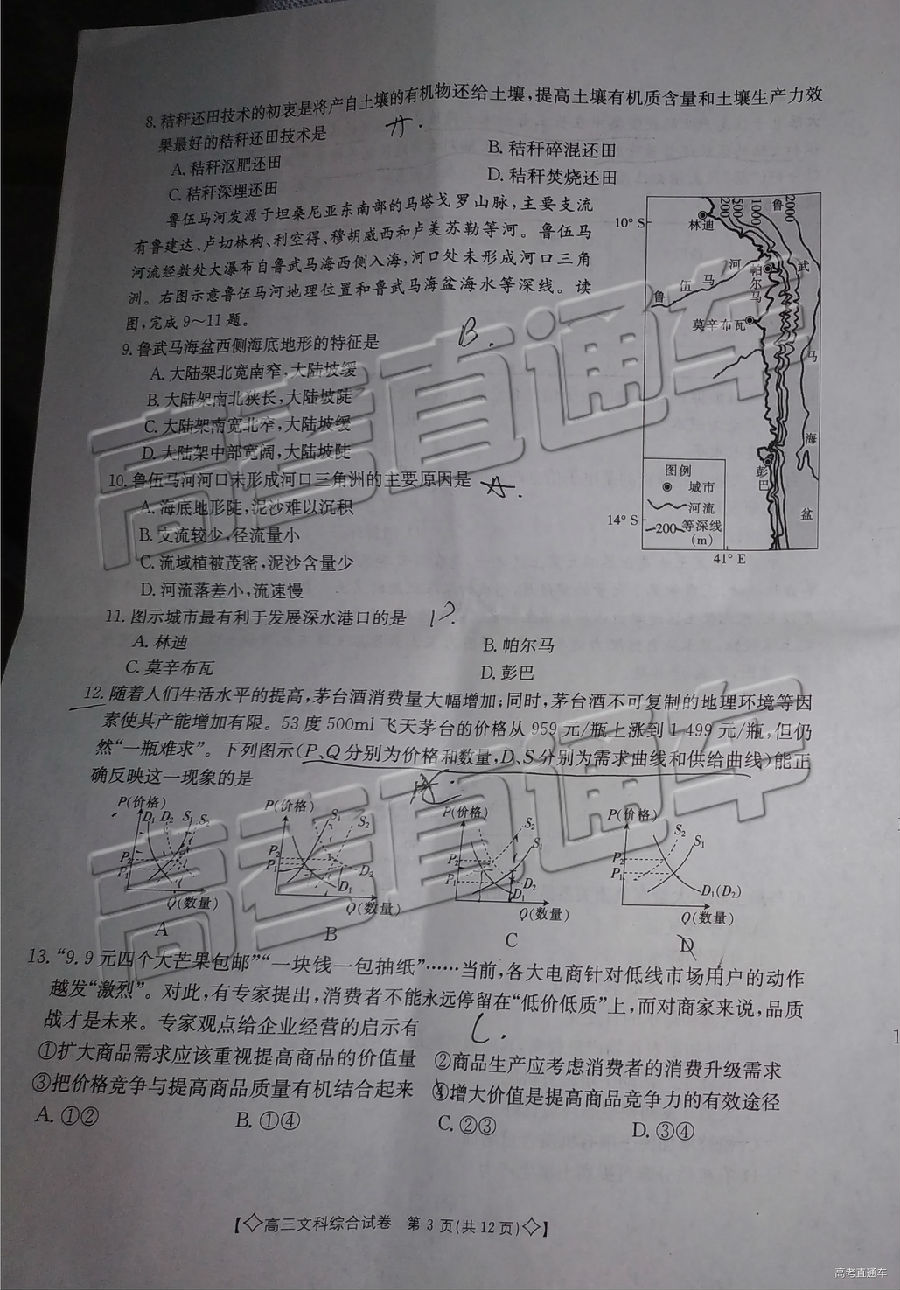 8. 秸秆还田技术的初衷是将产自土壤的有机物还给土壤,提高土壤有机质含量和土壤生产力效
果最好的秸秆还田技术是
A. 秸秆沤肥还田
B. 秸秆碎混还田
C. 秸秆深埋还田
D. 秸秆焚烧还田
鲁伍马河发源于坦桑尼亚东南部的马塔戈罗山脉,主要支流
有鲁建达、卢切林构、利空得、穆胡威西和卢美苏勒等河。鲁伍马
河流经数处大瀑布自鲁武马海西侧入海,河口处未形成河口三角
洲。右图示意鲁伍马河地理位置和鲁武马海盆海水等深线。读
图,完成9~11题。
9. 鲁武马海盆西侧海底地形的特征是 B.
A. 大陆架北宽南窄,大陆坡缓
B. 大陆架南北狭长,大陆坡陡
C. 大陆架南宽北窄,大陆坡缓
D. 大陆架中部宽阔,大陆坡陡
10. 鲁伍马河河口未形成河口三角洲的主要原因是 A.
A. 海底地形陡,泥沙难以沉积
B. 支流较少,径流量小
C. 流域植被茂密,泥沙含量少
D. 河流落差小,流速慢
10° S
林迪
200
500
1000
2000
鲁
武
马
海
盆
鲁伍马河
帕尔马
莫辛布瓦
彭巴
图例
城市
河流
200 等深线
(m)
14° S
41° E
11. 图示城市最有利于发展深水港口的是 D.
A. 林迪
B. 帕尔马
C. 莫辛布瓦
D. 彭巴
12. 随着人们生活水平的提高,茅台酒消费量大幅增加;同时,茅台酒不可复制的地理环境等因
素使其产能增加有限。53度500ml飞天茅台的价格从959元/瓶上涨到1499元/瓶,但仍
然“一瓶难求”。下列图示(P、Q分别为价格和数量,D、S分别为需求曲线和供给曲线)能正
确反映这一现象的是
A.
P(价格) D1 D2 S1 S2
P2
P1
Q(数量)
A
P(价格) S1 S2
P2
P1
D2
D1
Q(数量)
B
P(价格) S2
S1
P2
P1
D2
D1
Q(数量)
C
P(价格) S2
S1
P2
P1
D1(D2)
Q(数量)
D
13. “9.9元四个大芒果包邮”“一块钱一包抽纸”……当前,各大电商针对低线市场用户的动作
越发“激烈”。对此,有专家提出,消费者不能永远停留在“低价低质”上,而对商家来说,品质
战才是未来。专家观点给企业经营的启示有 C.
①扩大商品需求应该重视提高商品的价值量 ②商品生产应考虑消费者的消费升级需求
③把价格竞争与提高商品质量有机结合起来 ④增大价值是提高商品竞争力的有效途径
A. ①② B. ①④ C. ②③ D. ③④
【◇高三文科综合试卷 第3页(共12页)◇】
高考直通车
高考直通车
高考直通车